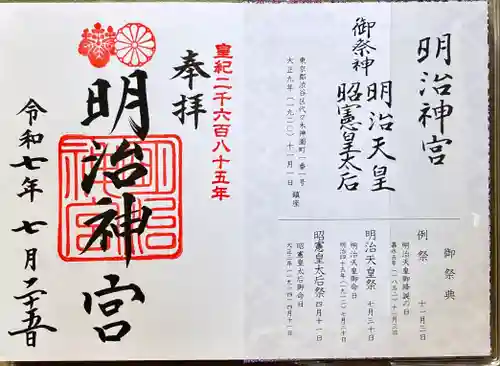 明治神宮
御祭神
明治天皇
昭憲皇太后
東京都渋谷区代々木神園町一番一号
大正九年（一九二〇）十一月一日 鎮座
御祭典
例祭 十一月三日
明治天皇御降誕の日
嘉永五年（一八五二）十一月三日
明治天皇祭 七月三十日
明治天皇御命日
明治四十五年（一九一二）七月三十日
昭憲皇太后祭 四月十一日
昭憲皇太后御命日
大正三年（一九一四）四月十一日
皇紀二千六百八十五年
奉拝
明治神宮
令和七年 七月二十五日